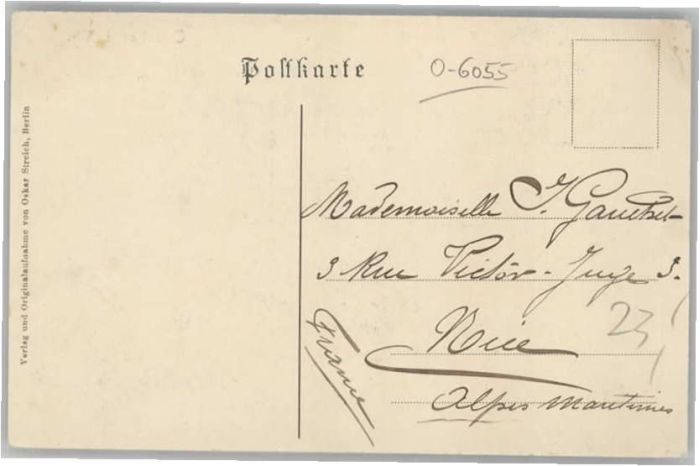 Postkarte
O-6055
Mademoiselle J. Gauthet
3 Rue Victor-Juge 3.
Nice
Alpes Maritimes
France
23
Verlag und Originalaufnahme von Oskar Streich, Berlin